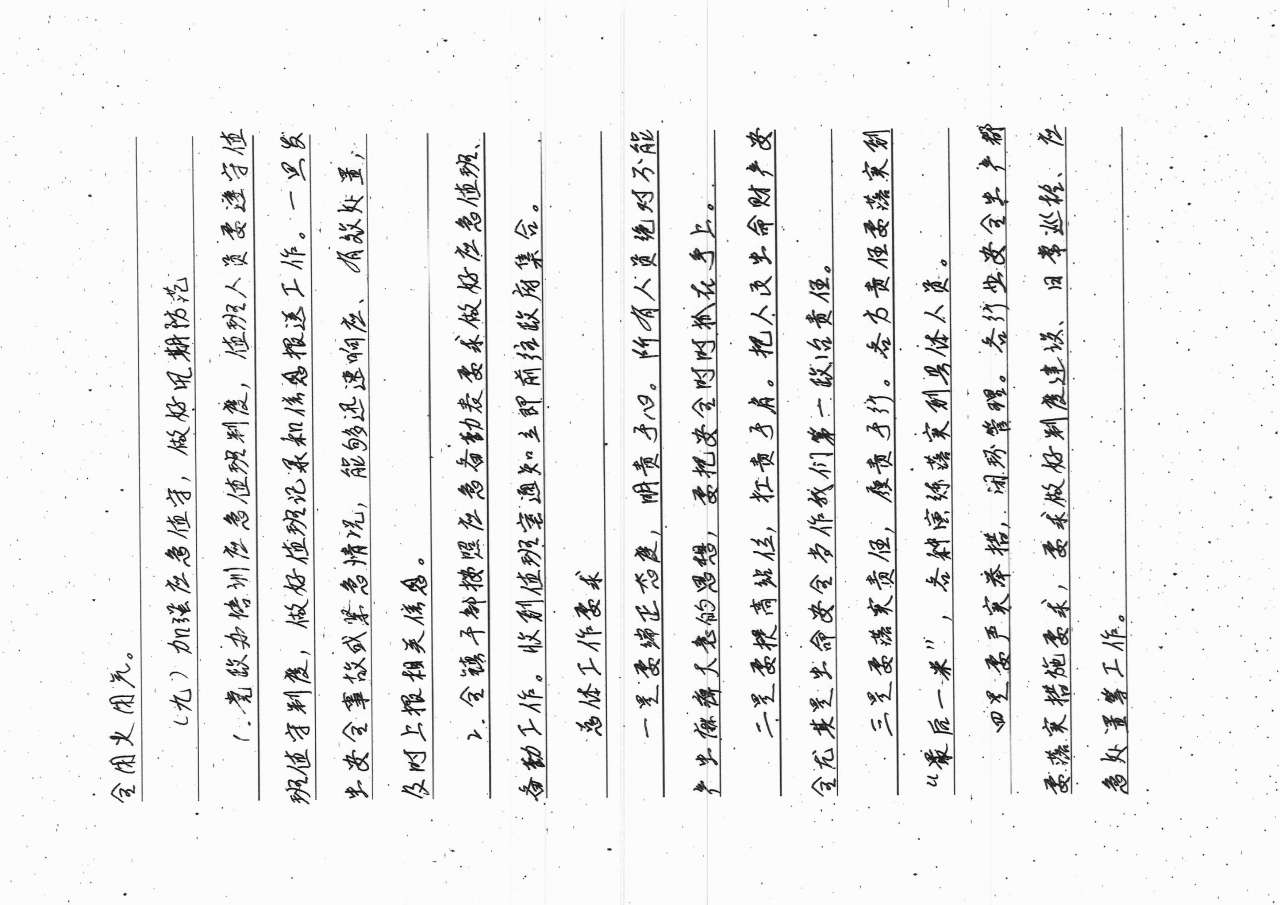 全用火用气。
（九）加强应急值守，做好汛期防范
1.党政办培训应急值班制度，值班人员要遵守值
班值守制度，做好值班记录和信息报送工作。一旦发
生安全事故或紧急情况，能够迅速响应、有效处置，
及时上报相关信息。
2.全镇干部按照应急备勤表要求做好应急值班、
备勤工作。收到值班室通知立即前往政府集合。
总体工作要求
一是要端正态度，明责于心。所有人员绝对不能
产生麻痹大意的思想，要把安全时时抓在手上。
二是要提高站位，扛责于肩。把人民生命财产安
全尤其是生命安全当作我们第一政治责任。
三是要落实责任，履责于行。各方责任要落实到
“最后一米”，各种演练落实到具体人员。
四是要严实举措，闭环管理。各行业安全生产都
要落实措施要求，要求做好制度建设、日常巡检、应
急处置等工作。